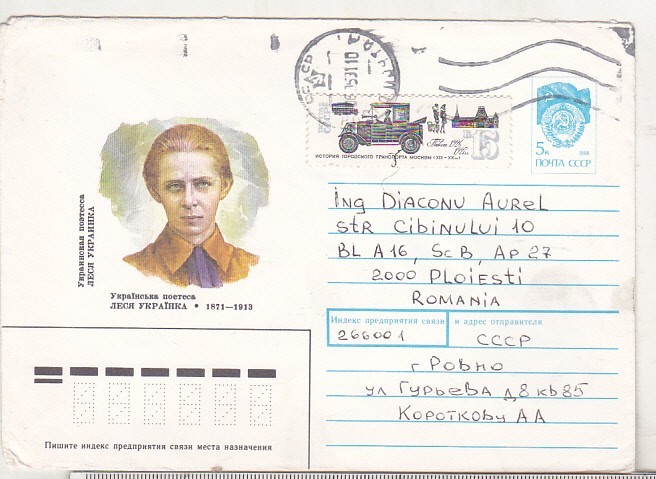 СССР
5к
1988
ПОЧТА СССР
15
Такси 1926
ИСТОРИЯ ГОРОДСКОГО ТРАНСПОРТА МОСКВЫ (XIX - XX вв.)
Украинская поэтесса
ЛЕСЯ УКРАИНКА
Українська поетеса
ЛЕСЯ УКРАЇНКА • 1871—1913
Ing Diaconu Aurel
Str Cibinului 10
BL A16, Sc B, Ap 27
2000 Ploiesti
Romania
Индекс предприятия связи и адрес отправителя
266001 СССР
г Ровно
ул Гурьева д 8 кв 85
Короткову АА
Пишите индекс предприятия связи места назначения